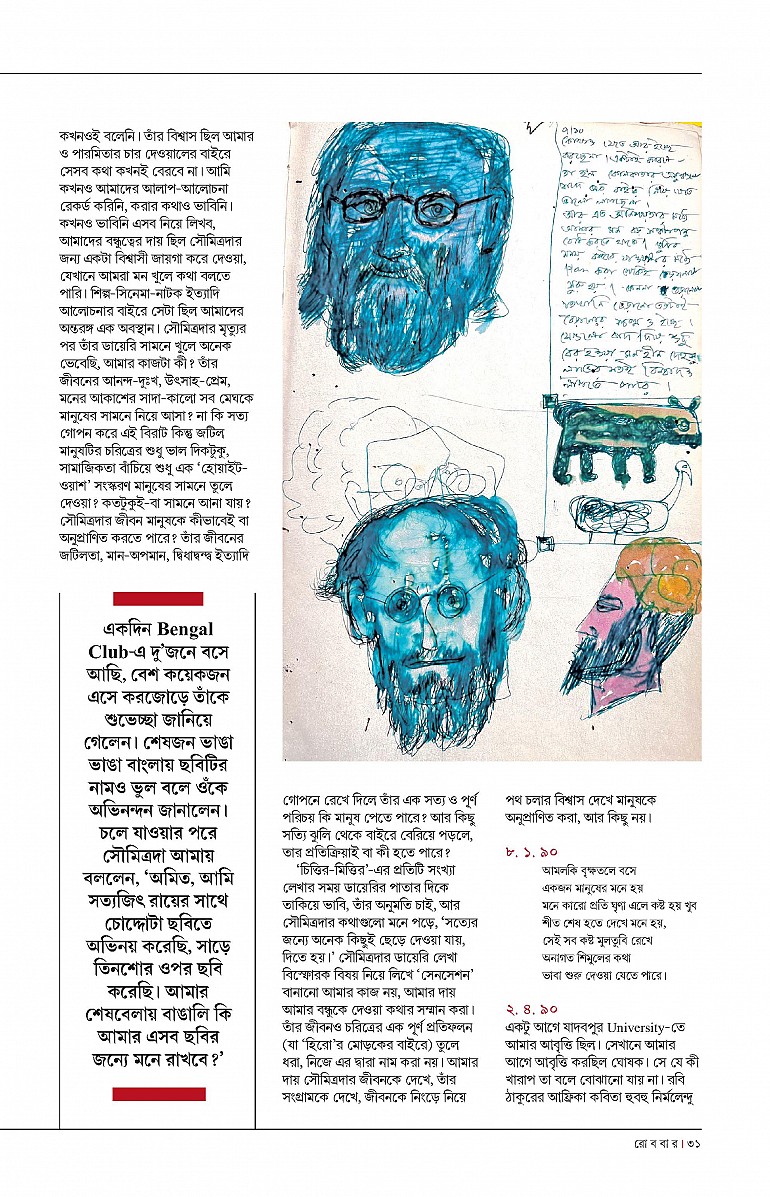 কখনওই বলেনি। তাঁর বিশ্বাস ছিল আমার
ও পারমিতার চার দেওয়ালের বাইরে
সেসব কথা কখনই বেরবে না। আমি
কখনও আমাদের আলাপ-আলোচনা
রেকর্ড করিনি, করার কথাও ভাবিনি।
কখনও ভাবিনি এসব নিয়ে লিখব,
আমাদের বন্ধুত্বের দায় ছিল সৌমিত্রদার
জন্য একটা বিশ্বাসী জায়গা করে দেওয়া,
যেখানে আমরা মন খুলে কথা বলতে
পারি। শিল্প-সিনেমা-নাটক ইত্যাদি
আলোচনার বাইরে সেটা ছিল আমাদের
অন্তরঙ্গ এক অবস্থান। সৌমিত্রদার মৃত্যুর
পর তাঁর ডায়েরি সামনে খুলে অনেক
ভেবেছি, আমার কাজটা কী? তাঁর
জীবনের আনন্দ-দুঃখ, উৎসাহ-প্রেম,
মনের আকাশের সাদা-কালো সব মেঘকে
মানুষের সামনে নিয়ে আসা? না কি সত্য
গোপন করে এই বিরাট কিন্তু জটিল
মানুষটির চরিত্রের শুধু ভাল দিকটুকু,
সামাজিকতা বাঁচিয়ে শুধু এক ‘হোয়াইট-
ওয়াশ’ সংস্করণ মানুষের সামনে তুলে
দেওয়া? কতটুকুই-বা সামনে আনা যায়?
সৌমিত্রদার জীবন মানুষকে কীভাবেই বা
অনুপ্রাণিত করতে পারে? তাঁর জীবনের
জটিলতা, মান-অপমান, দ্বিধাদ্বন্দ্ব ইত্যাদি
একদিন Bengal
Club-এ দু’জনে বসে
আছি, বেশ কয়েকজন
এসে করজোড়ে তাঁকে
শুভেচ্ছা জানিয়ে
গেলেন। শেষজন ভাঙা
ভাঙা বাংলায় ছবিটির
নামও ভুল বলে ওঁকে
অভিনন্দন জানালেন।
চলে যাওয়ার পরে
সৌমিত্রদা আমায়
বললেন, ‘অমিত, আমি
সত্যজিৎ রায়ের সাথে
চোদ্দোটা ছবিতে
অভিনয় করেছি, সাড়ে
তিনশোর ওপর ছবি
করেছি। আমার
শেষবেলায় বাঙালি কি
আমার এসব ছবির
জন্যে মনে রাখবে?’
গোপনে রেখে দিলে তাঁর এক সত্য ও পূর্ণ
পরিচয় কি মানুষ পেতে পারে? আর কিছু
সত্যি ঝুলি থেকে বাইরে বেরিয়ে পড়লে,
তার প্রতিক্রিয়াই বা কী হতে পারে?
‘চিত্তির-মিত্তির’-এর প্রতিটি সংখ্যা
লেখার সময় ডায়েরির পাতার দিকে
তাকিয়ে ভাবি, তাঁর অনুমতি চাই, আর
সৌমিত্রদার কথাগুলো মনে পড়ে, ‘সত্যের
জন্যে অনেক কিছুই ছেড়ে দেওয়া যায়,
দিতে হয়।’ সৌমিত্রদার ডায়েরি লেখা
বিস্ফোরক বিষয় নিয়ে লিখে ‘সেনসেশন’
বানানো আমার কাজ নয়, আমার দায়
আমার বন্ধুকে দেওয়া কথার সম্মান করা।
তাঁর জীবনও চরিত্রের এক পূর্ণ প্রতিফলন
(যা ‘হিরো’র মোড়কের বাইরে) তুলে
ধরা, নিজে এর দ্বারা নাম করা নয়। আমার
দায় সৌমিত্রদার জীবনকে দেখে, তাঁর
সংগ্রামকে দেখে, জীবনকে নিংড়ে নিয়ে
পথ চলার বিশ্বাস দেখে মানুষকে
অনুপ্রাণিত করা, আর কিছু নয়।
৮. ১. ৯০
আমলকি বৃক্ষতলে বসে
একজন মানুষের মনে হয়
মনে কারো প্রতি ঘৃণা এলে কষ্ট হয় খুব
শীত শেষ হতে দেখে মনে হয়,
সেই সব কষ্ট মুলতুবি রেখে
অনাগত শিমুলের কথা
ভাবা শুরু দেওয়া যেতে পারে।
২. ৪. ৯০
একটু আগে যাদবপুর University-তে
আমার আবৃত্তি ছিল। সেখানে আমার
আগে আবৃত্তি করছিল ঘোষক। সে যে কী
খারাপ তা বলে বোঝানো যায় না। রবি
ঠাকুরের আফ্রিকা কবিতা হুবহু নির্মলেন্দু
রোববার। ৩১